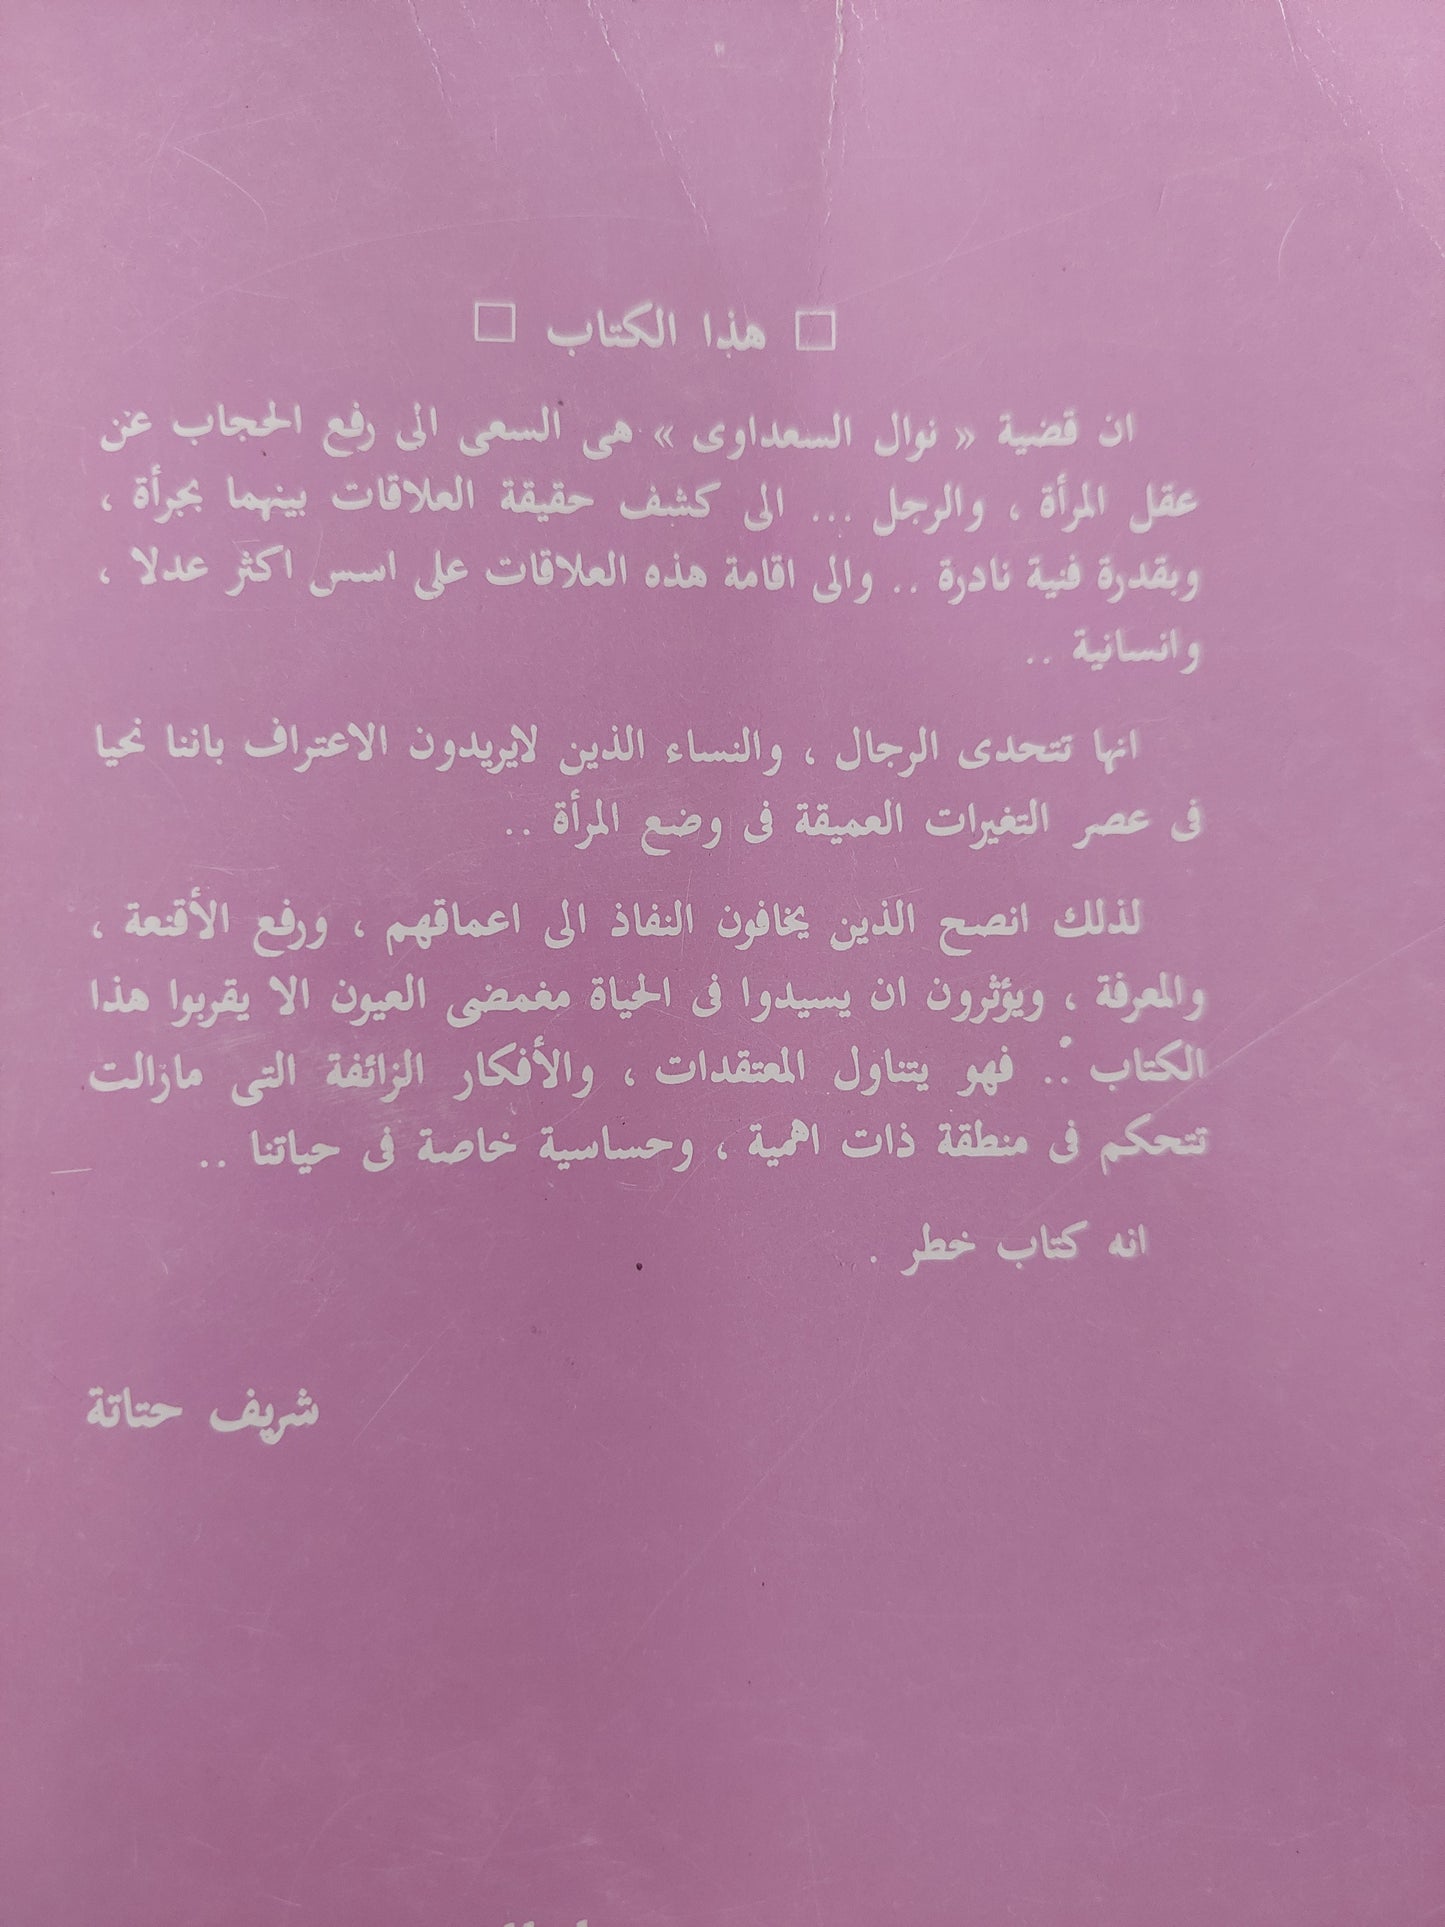 □ هذا الكتاب □
ان قضية « نوال السعداوى » هى السعى الى رفع الحجاب عن
عقل المرأة ، والرجل ... الى كشف حقيقة العلاقات بينهما بجرأة ،
وبقدرة فنية نادرة .. والى اقامة هذه العلاقات على اسس اكثر عدلا ،
وانسانية ..
انها تتحدى الرجال ، والنساء الذين لايريدون الاعتراف باننا نحيا
فى عصر التغيرات العميقة فى وضع المرأة ..
لذلك انصح الذين يخافون النفاذ الى اعماقهم ، ورفع الأقنعة ،
والمعرفة ، ويؤثرون ان يسيدوا فى الحياة مغمضى العيون الا يقربوا هذا
الكتاب .. فهو يتناول المعتقدات ، والأفكار الزائفة التى مازالت
تتحكم فى منطقة ذات اهمية ، وحساسية خاصة فى حياتنا ..
انه كتاب خطر .
شريف حتاتة